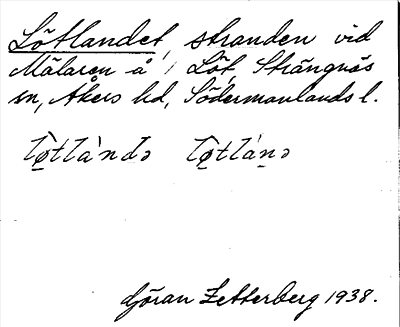 Lötlandet, stranden vid
Mälaren å Löt, Strängnäs
sn, Åkers hd, Södermanlands l.
Göran Zetterberg 1938.